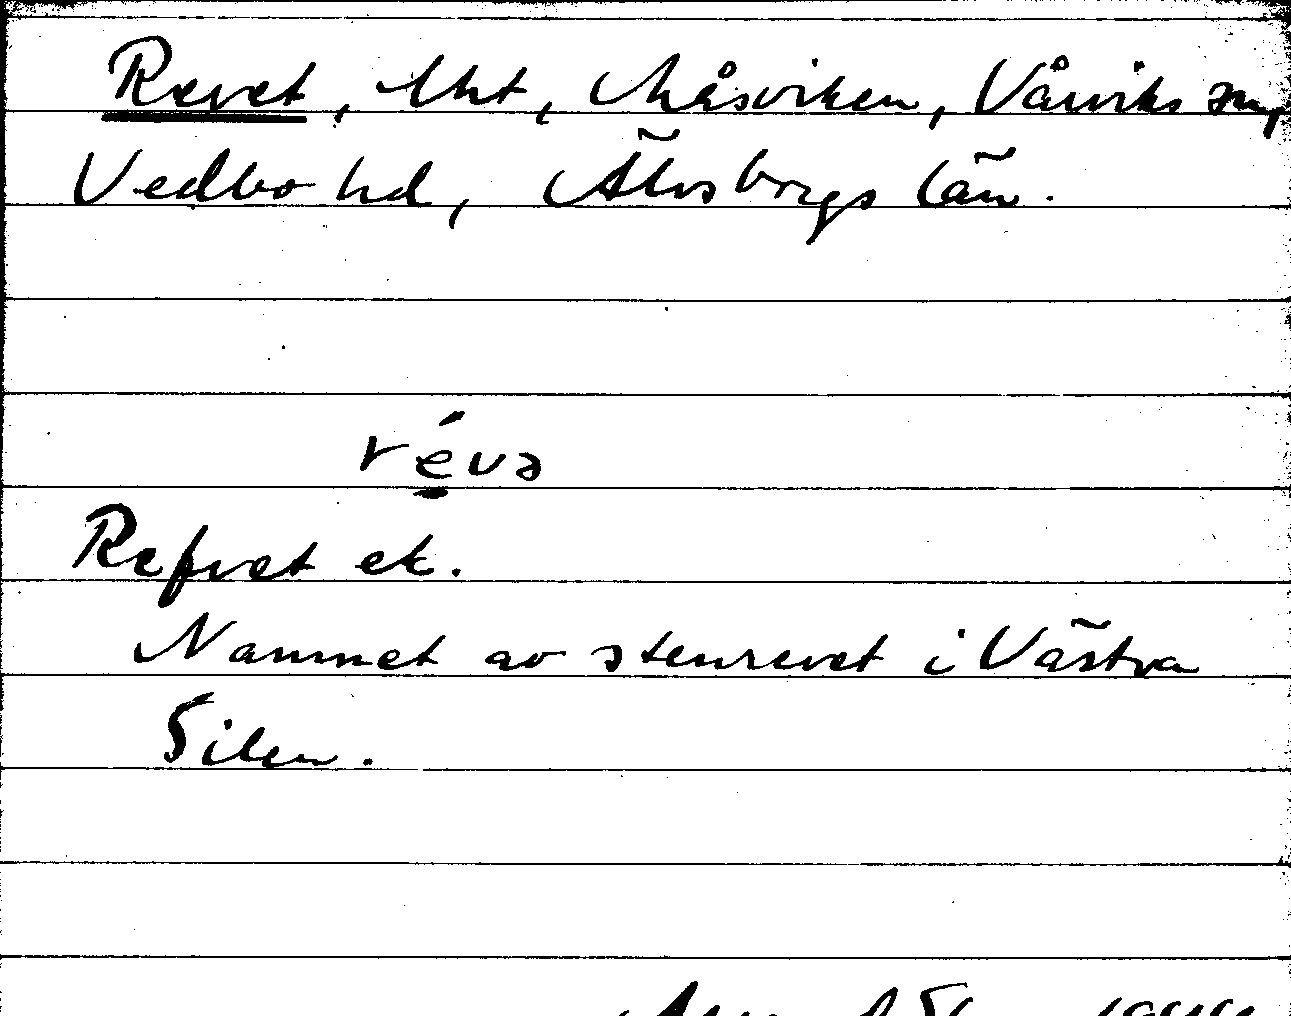 Revet, lht, Måsviken, Vårviks sn,
Vedbo hd, Älvsborgs län.
révə
Refvet ek.
Namnet av stenrevet i Västra
Silen.